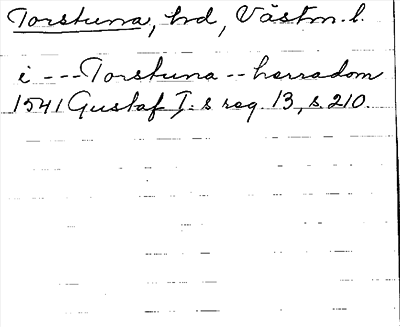 Torstuna, hd, Västm. l.
i --- Torstuna -- herradom
1541 Gustaf I:s reg. 13, s. 210.